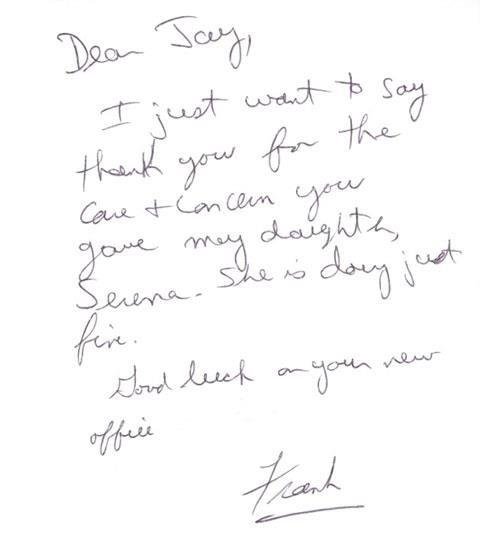 Dear Jay,
I just want to say
thank you for the
care + concern you
gave my daughter,
Serena. She is doing just
fine.
Good luck on your new
office
Frank